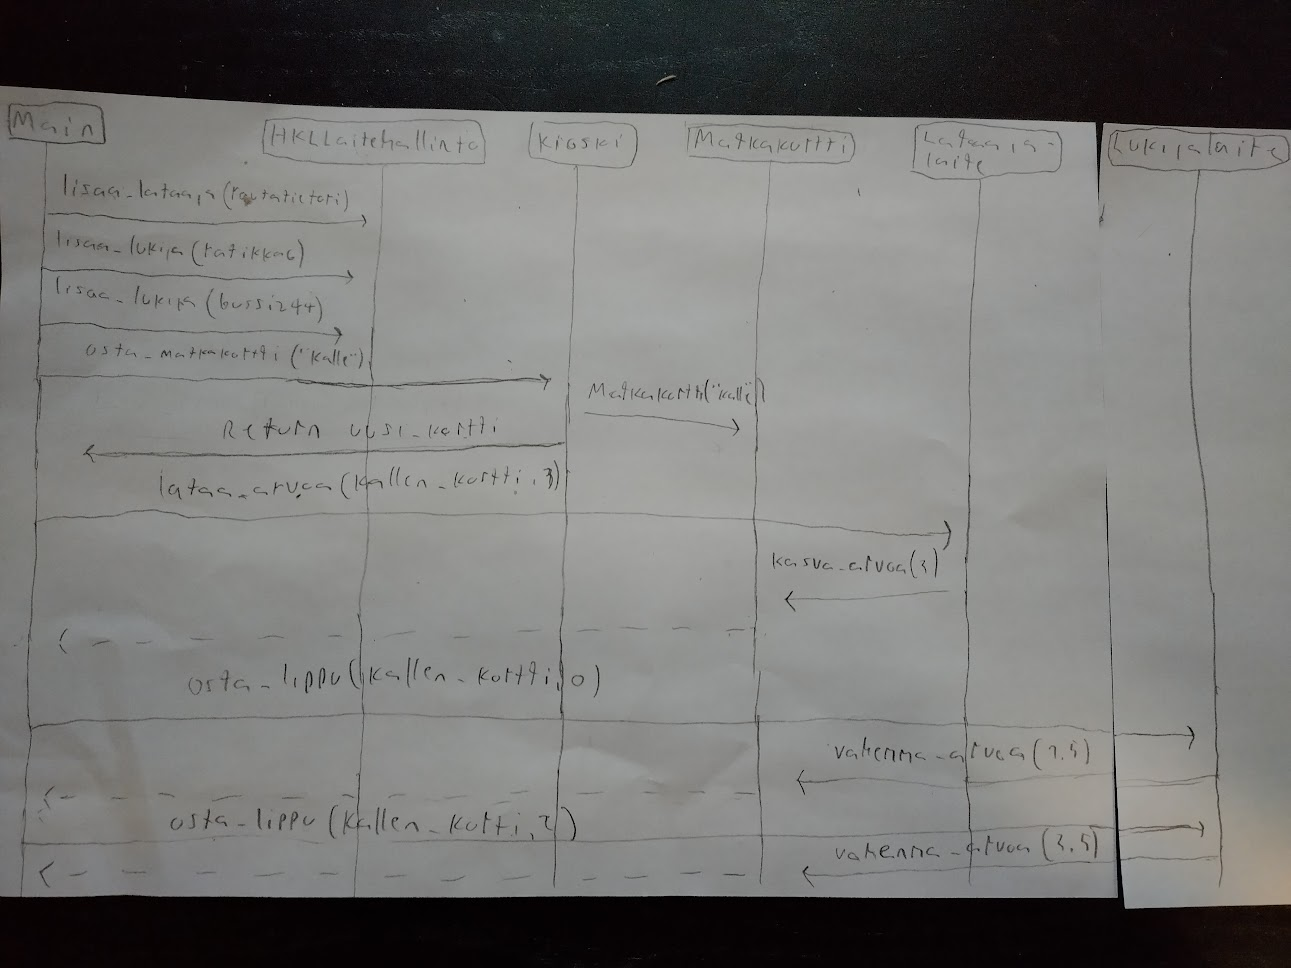 Main
HKLLaitehallinto
Kioski
Matkakortti
Lataaja-
laite
Lukijalaite
lisaa_lataaja(rautatietori)
lisaa_lukija(ratikka6)
lisaa_lukija(bussi244)
osta_matkakortti("kalle")
Matkakortti("kalle")
Return uusi_kortti
lataa_arvoa(kallen_kortti,3)
kasva_arvoa(3)
osta_lippu(kallen_kortti,0)
vahenna_arvoa(1.5)
osta_lippu(kallen_kortti,2)
vahenna_arvoa(3.5)